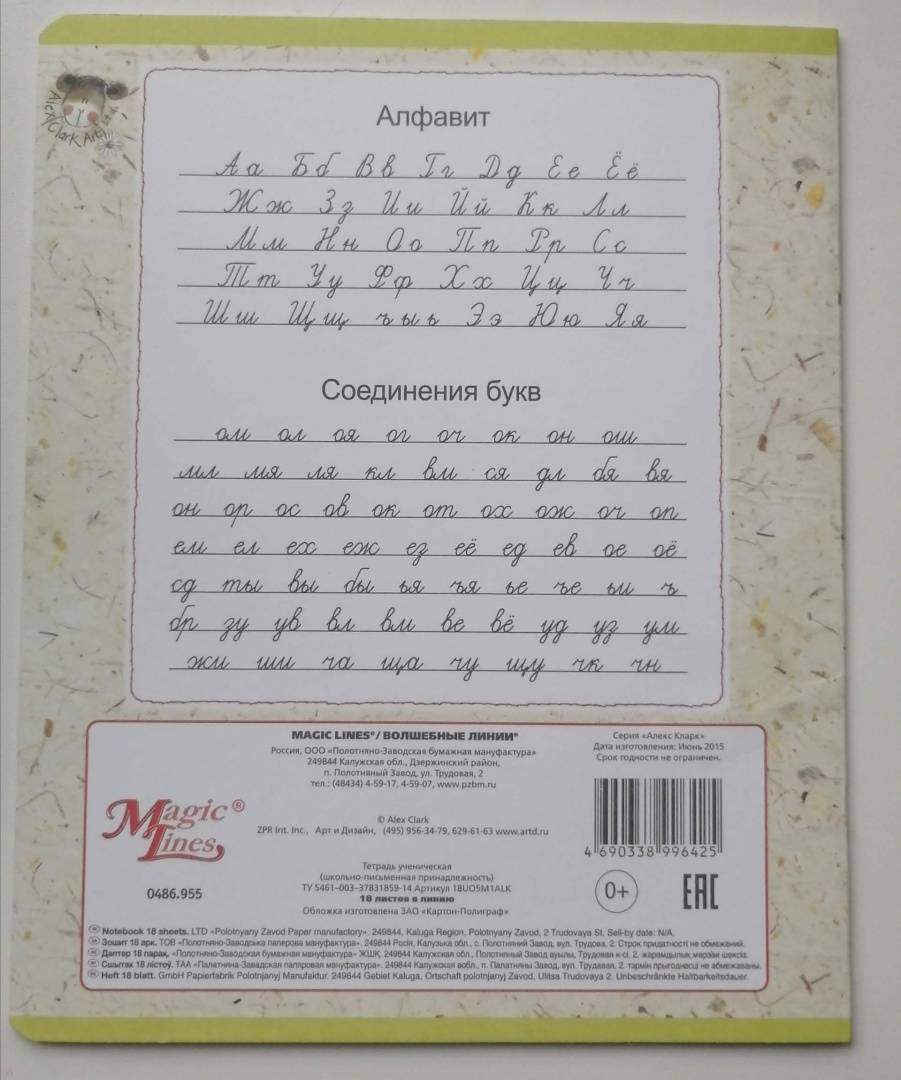 Alex Clark Art Ltd
Алфавит
Аа Бб Вв Гг Дд Ее Ёё
Жж Зз Ии Йй Кк Лл
Мм Нн Оо Пп Рр Сс
Тт Уу Фф Хх Цц Чч
Шш Щщ ъыь Ээ Юю Яя
Соединения букв
ом ол оя ог оч ок он ош
мл мя ля кл вм ся дл бя вя
он ор ос ов ок от ох ож оч оп
ем ел ех еж ез её ед ев ое оё
сд ты вы бы ья ъя ье ъе ьи ъ
бр зу ув вл вм ве вё уд уз ум
жи ши ча ща чу щу чк чн
MAGIC LINES®/ ВОЛШЕБНЫЕ ЛИНИИ®
Россия, ООО «Полотняно-Заводская бумажная мануфактура»
249844 Калужская обл., Дзержинский район,
п. Полотняный Завод, ул. Трудовая, 2
тел.: (48434) 4-59-17, 4-59-07, www.pzbm.ru
Серия «Алекс Кларк»
Дата изготовления: Июнь 2015
Срок годности не ограничен.
Magic® Lines
0486.955
© Alex Clark
ZPR Int. Inc., Арт и Дизайн, (495) 956-34-79, 629-61-63 www.artd.ru
Тетрадь ученическая
(школьно-письменная принадлежность)
ТУ 5461-003-37831859-14 Артикул 18UO5M1ALK
18 листов в линию
Обложка изготовлена ЗАО «Картон-Полиграф»
4 690338 996425
0+
EAC
Notebook 18 sheets. LTD «Polotnyany Zavod Paper manufactory». 249844, Kaluga Region, Polotnyany Zavod, 2 Trudovaya St. Sell-by date: N/A.
Зошит 18 арк. ТОВ «Полотняно-Заводська паперова мануфактура». 249844 Росія, Калузька обл., с. Полотняний Завод, вул. Трудова, 2. Строк придатності не обмежений.
Дәптер 18 парақ. «Полотняно-Заводская бумажная мануфактура» ЖШҚ. 249844 Калужская обл., Полотняный Завод ауылы, Трудовая к-сі, 2. жарамдылық мерзімі шексіз.
Сшытак 18 лістоў. ТАА «Палатняна-Завадская папяровая мануфактура». 249844 Калужская вобл., п. Палатняны Завод, вул. Трудавая, 2. тэрмін прыгоднасці не абмежаваны.
Heft 18 blatt. GmbH Papierfabrik Polotnjanyj Manufaktur. 249844 Gebiet Kaluga, Ortschaft polotnjanyj Zavod, Ulitsa Trudovaya 2. Unbeschränkte Haltbarkeitsdauer.